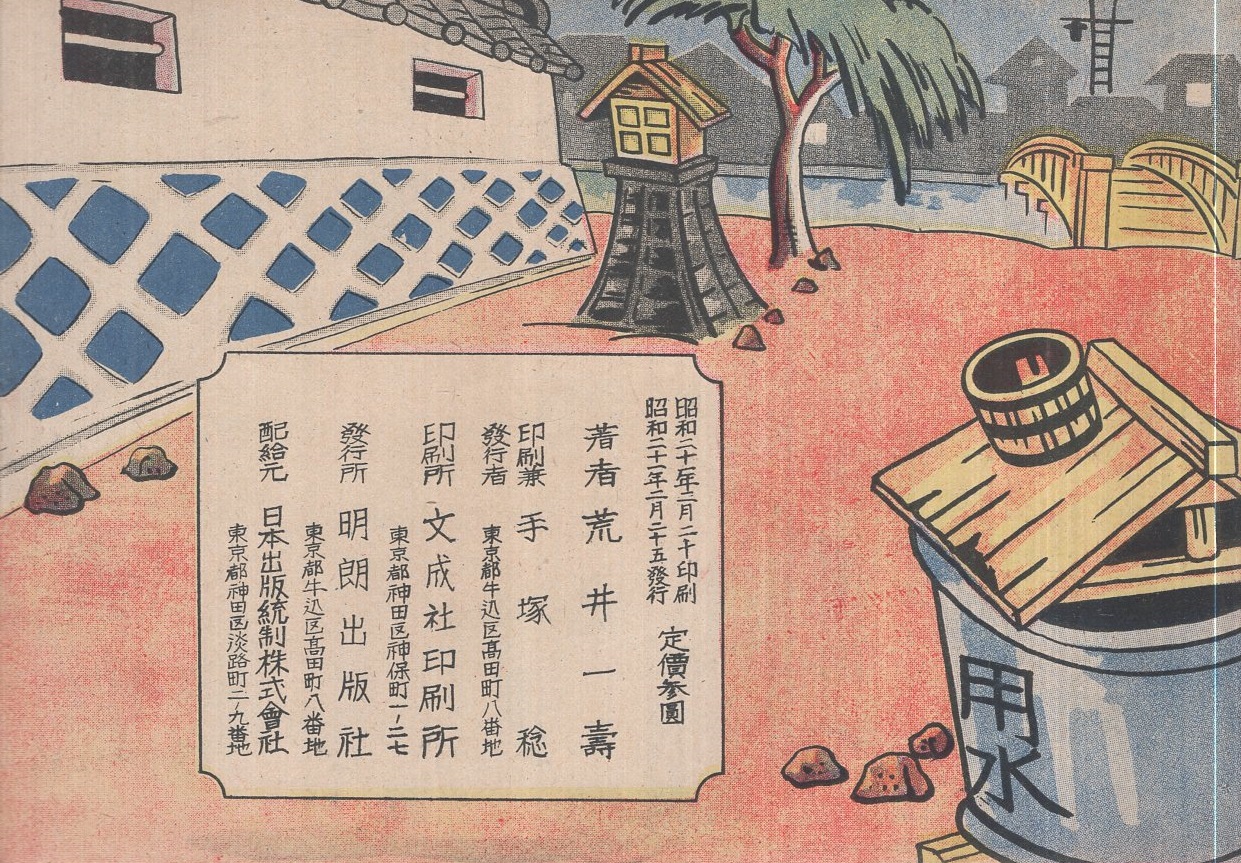 昭和二十年二月二十印刷
昭和二十一年二月二十五發行
定價参圓
著者 荒井一壽
印刷兼
發行者 手塚稔
東京都牛込区髙田町八番地
印刷所 文成社印刷所
東京都神田区神保町一ノ二七
發行所 明朗出版社
東京都牛込区髙田町八番地
配給元 日本出版統制株式會社
東京都神田区淡路町二ノ九番地
用水